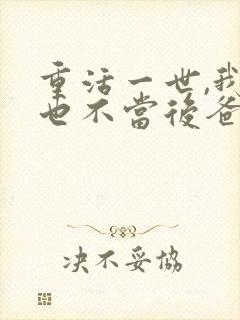 重活一世,我
也不當後爸
决不妥協